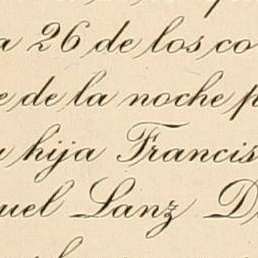 a 26 de los co
e de la noche p
u hija Francis
uel Lanz D